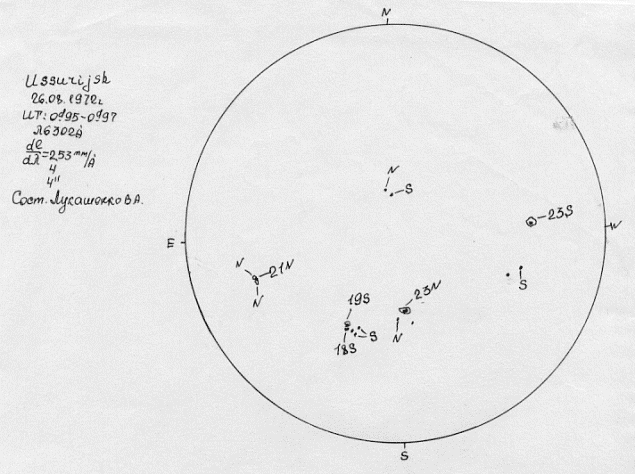 Ussurijsk
26.08.1972г
UT: 0ᵈ95-0ᵈ97
λ6302Å
dl/dλ=253 mm/Å
4
4"
Сост. Лукашенко В А.
N
N
S
23S
W
E
N
21N
N
S
19S
23N
18S
S
N
S